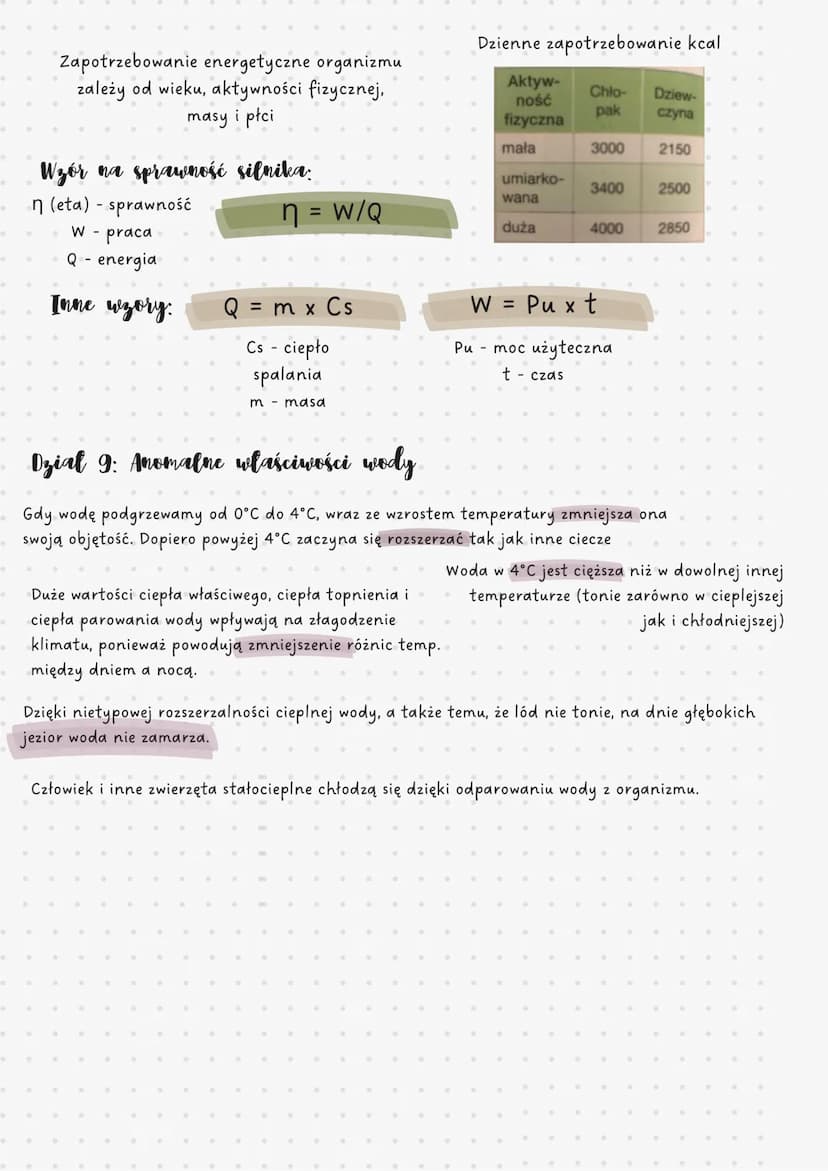 Zapotrzebowanie energetyczne organizmu
zależy od wieku, aktywności fizycznej,
masy i płci
Dzienne zapotrzebowanie kcal
Aktyw-
ność
fizyczna
Chło-
pak
Dziew-
czyna
mała 3000 2150
umiarko-
wana 3400 2500
duża 4000 2850
Wzór na sprawność silnika:
η (eta) - sprawność
W - praca
Q - energia
η = W/Q
Inne wzory:
Q = m x Cs
Cs - ciepło
spalania
m - masa
W = Pu x t
Pu - moc użyteczna
t - czas
Dział 9: Anomalne właściwości wody
Gdy wodę podgrzewamy od 0°C do 4°C, wraz ze wzrostem temperatury zmniejsza ona
swoją objętość. Dopiero powyżej 4°C zaczyna się rozszerzać tak jak inne ciecze
Woda w 4°C jest cięższa niż w dowolnej innej
temperaturze (tonie zarówno w cieplejszej
jak i chłodniejszej)
Duże wartości ciepła właściwego, ciepła topnienia i
ciepła parowania wody wpływają na złagodzenie
klimatu, ponieważ powodują zmniejszenie różnic temp.
między dniem a nocą.
Dzięki nietypowej rozszerzalności cieplnej wody, a także temu, że lód nie tonie, na dnie głębokich
jezior woda nie zamarza.
Człowiek i inne zwierzęta stałocieplne chłodzą się dzięki odparowaniu wody z organizmu.